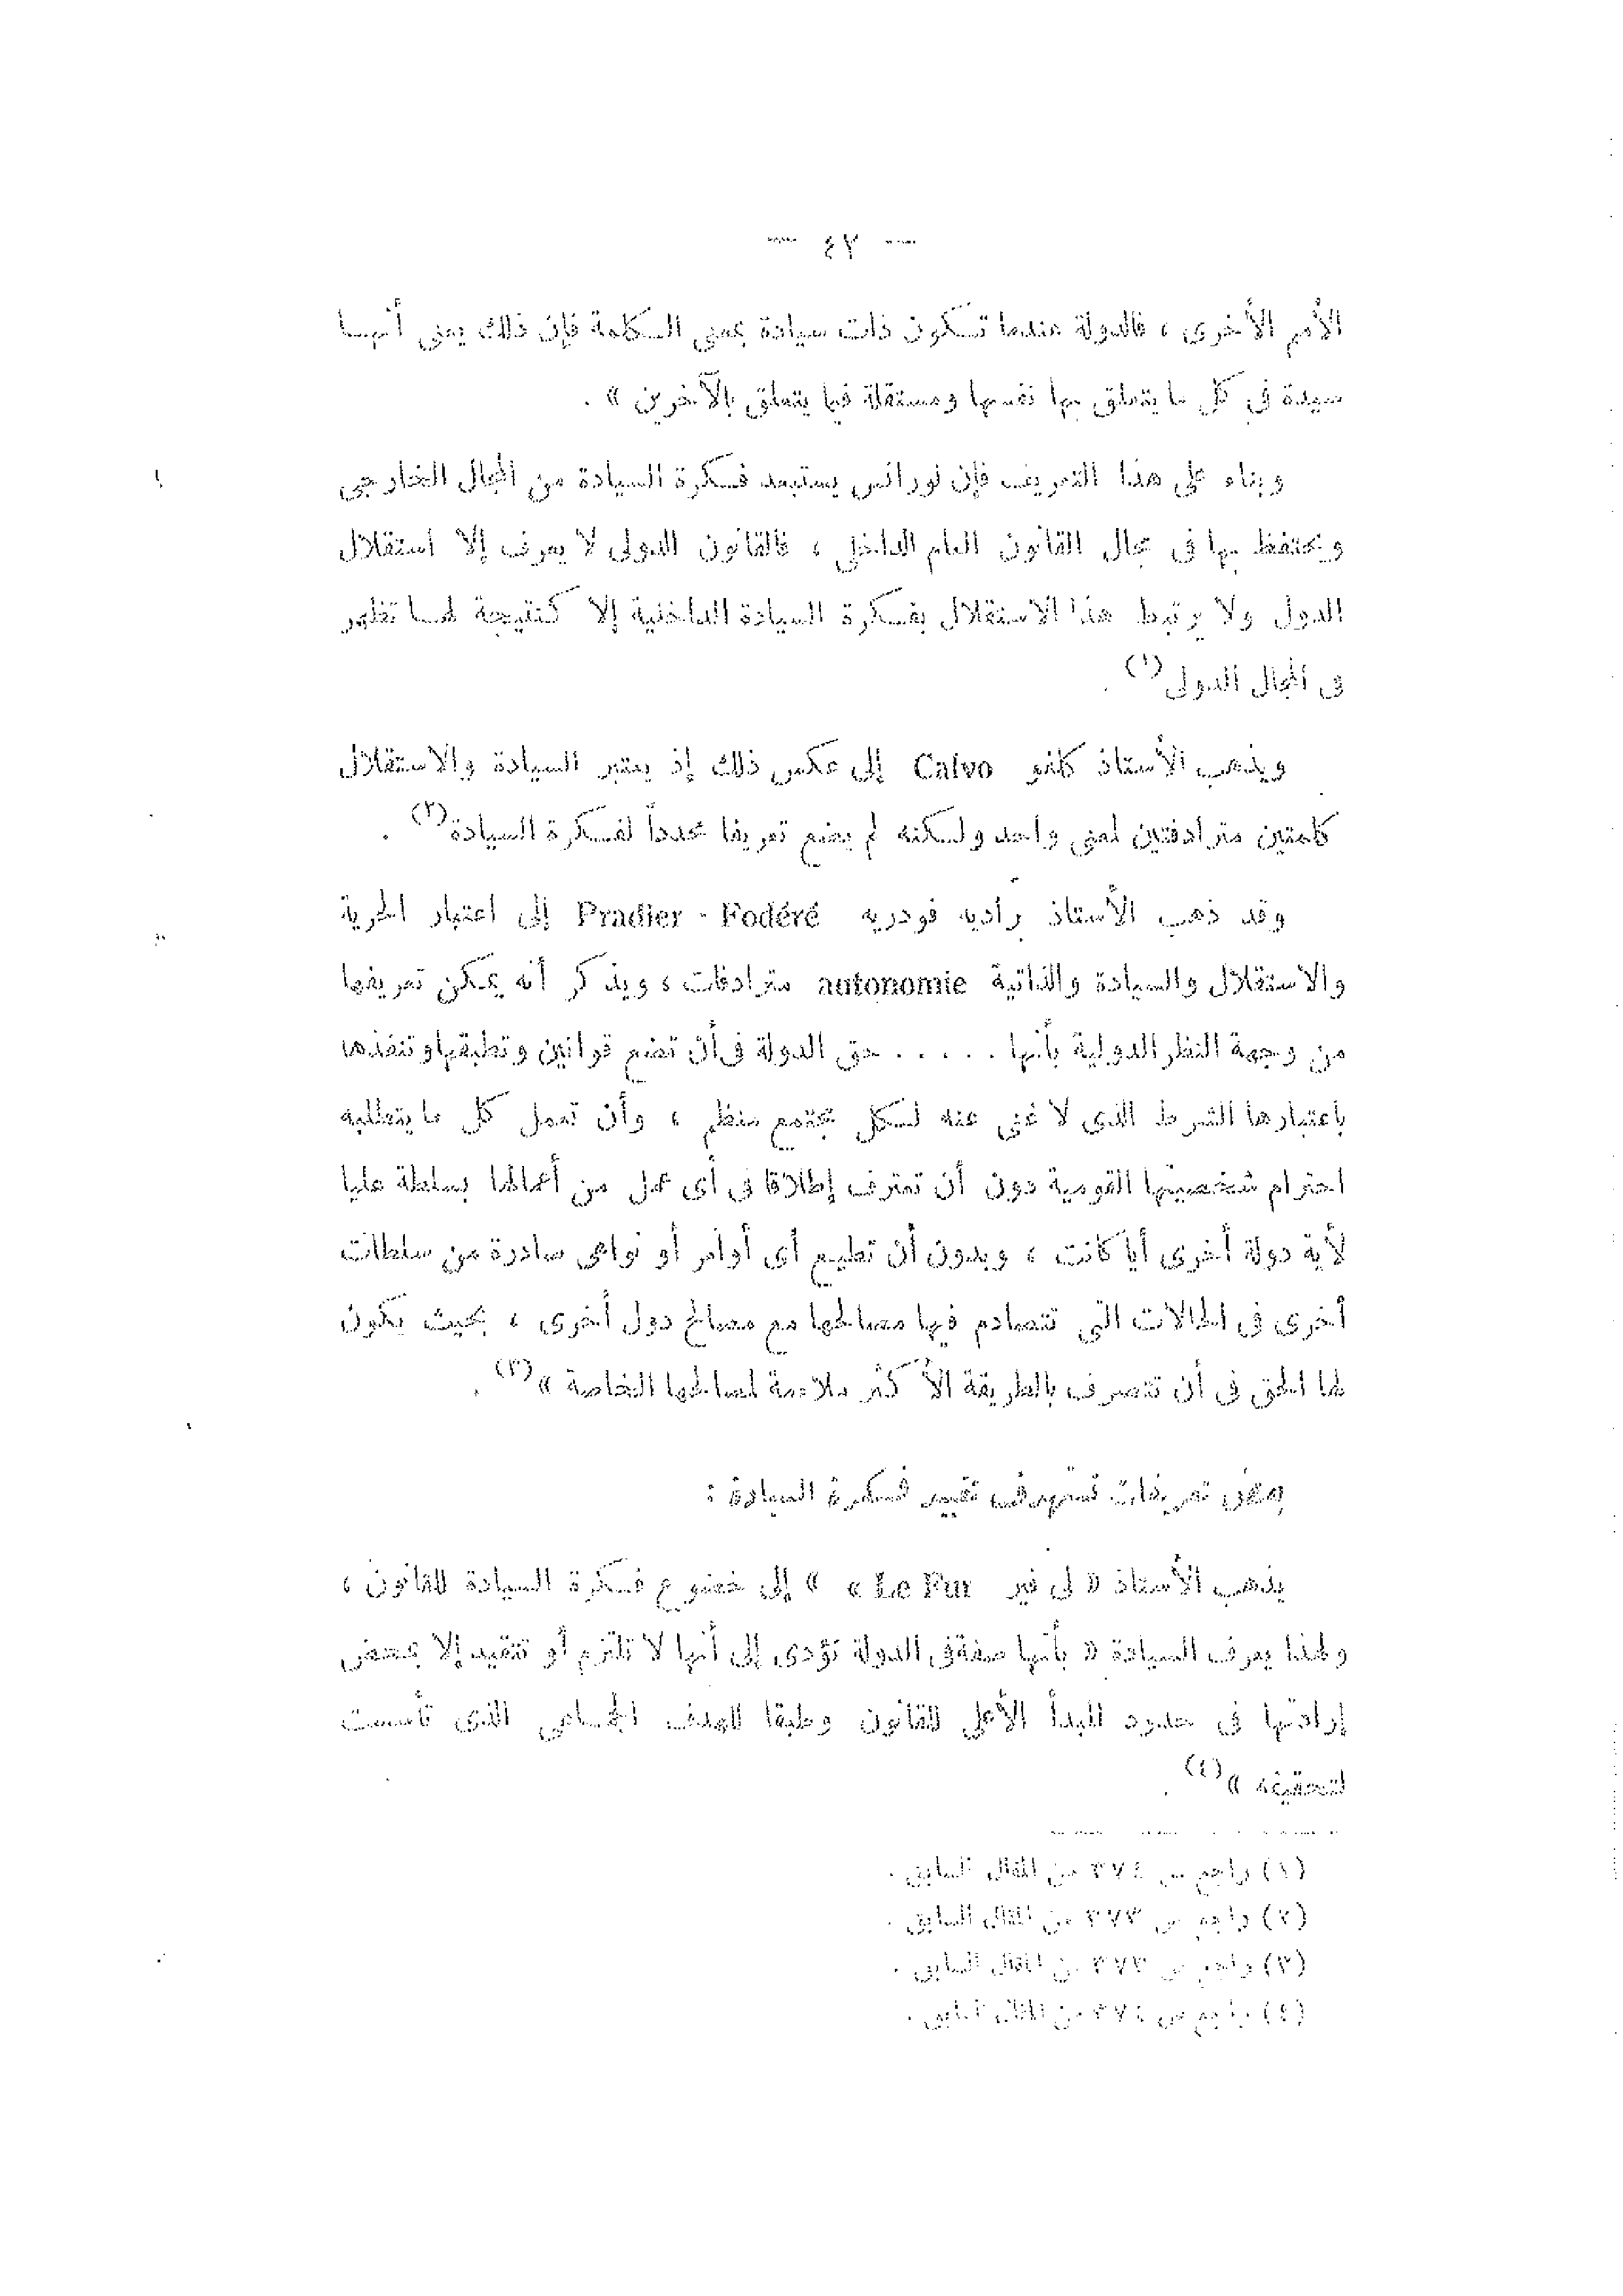 — ٤٧ —
الأمم الأخرى ، فالدولة عندما تكون ذات سيادة بمعنى الكلمة فإن ذلك يعنى أنهـا
سيدة فى كل ما يتعلق بها نفسها ومستقلة فيما يتعلق بالآخرين » .
وبناء على هذا التعريف فإن لورانس يستبعد فكرة السيادة من المجال الخارجى
ويحتفظ بها فى مجال القانون العام الداخلى ، فالقانون الدولى لا يعرف إلا استقلال
الدول ولا يرتبط هذا الاستقلال بفكرة السيادة الداخلية إلا كنتيجة لهـا تظهر
فى المجال الدولى(١) .
ويذهب الأستاذ كلفو Calvo إلى عكس ذلك إذ يعتبر السيادة والاستقلال
كلمتين مترادفتين لمعنى واحد ولكنه لم يضع تعريفا محدداً لفكرة السيادة(٢) .
وقد ذهب الأستاذ برادييه فودريه Pradier - Fodéré إلى اعتبار الحرية
والاستقلال والسيادة والذاتية autonomie مترادفات ، ويذكر أنه يمكن تعريفها
من وجهة النظر الدولية بأنها . . . . . حق الدولة فى أن تضع قوانين وتطبقها وتنفذها
باعتبارها الشرط الذى لا غنى عنه لكل مجتمع منظم ، وأن تعمل كل ما يتطلبه
احترام شخصيتها القومية دون أن تعترف إطلاقا فى أى عمل من أعمالها بسلطة عليا
لأية دولة أخرى أيا كانت ، وبدون أن تطيع أى أوامر أو نواهى صادرة من سلطات
أخرى فى الحالات التى تتصادم فيها مصالحها مع مصالح دول أخرى ، بحيث يكون
لها الحق فى أن تتصرف بالطريقة الأكثر ملاءمة لمصالحها الخاصة »(٣) .
بعض تعريفات تستهدف تقييد فكرة السيادة :
يذهب الأستاذ « لى فير Le Fur » » إلى خضوع فكرة السيادة للقانون ،
ولهذا يعرف السيادة « بأنها صفة فى الدولة تؤدى إلى أنها لا تلتزم أو تتقيد إلا بمحض
إرادتها فى حدود المبدأ الأعلى للقانون وطبقا للهدف الجماعى الذى تأسست
لتحقيقه »(٤) .
(١) راجع ص ٣٧٤ من المقال السابق .
(٢) راجع ص ٣٧٣ من المقال السابق .
(٣) راجع ص ٣٧٣ من المقال السابق .
(٤) راجع ص ٣٧٤ من المقال السابق .